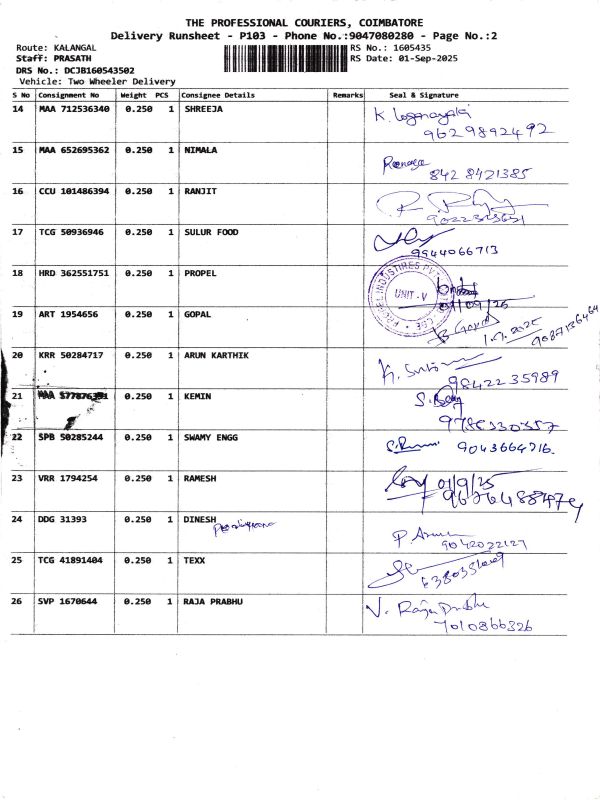 THE PROFESSIONAL COURIERS, COIMBATORE
Delivery Runsheet - P103 - Phone No.:9047080280 - Page No.:2
Route: KALANGAL
RS No.: 1605435
Staff: PRASATH
RS Date: 01-Sep-2025
DRS No.: DCJB160543502
Vehicle: Two Wheeler Delivery
S No Consignment No Weight PCS Consignee Details Remarks Seal & Signature
14 MAA 712536340 0.250 1 SHREEJA K. Loganayaki
9629892492
15 MAA 652695362 0.250 1 NIMALA
842 8421385
16 CCU 101486394 0.250 1 RANJIT
17 TCG 50936946 0.250 1 SULUR FOOD
9944066713
18 HRD 362551751 0.250 1 PROPEL
PROPEL INDUSTRIES PVT
UNIT - V
CBE
01/09/25
19 ART 1954656 0.250 1 GOPAL
1.9.2025
9087136464
20 KRR 50284717 0.250 1 ARUN KARTHIK
9842235989
21 MAA 0.250 1 KEMIN
22 SPB 50285244 0.250 1 SWAMY ENGG
9043664716.
23 VRR 1794254 0.250 1 RAMESH 01/9/25
24 DDG 31393 0.250 1 DINESH
25 TCG 41891404 0.250 1 TEXX
26 SVP 1670644 0.250 1 RAJA PRABHU V. Raja Prabhu
7010866326